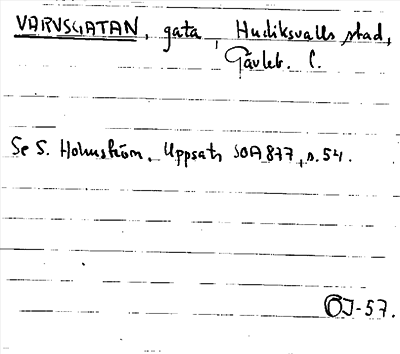 VARVSGATAN, gata, Hudiksvalls stad,
Gävleb. l.
Se S. Holmström, Uppsats SOA 877, s. 54.
ÖJ-57.